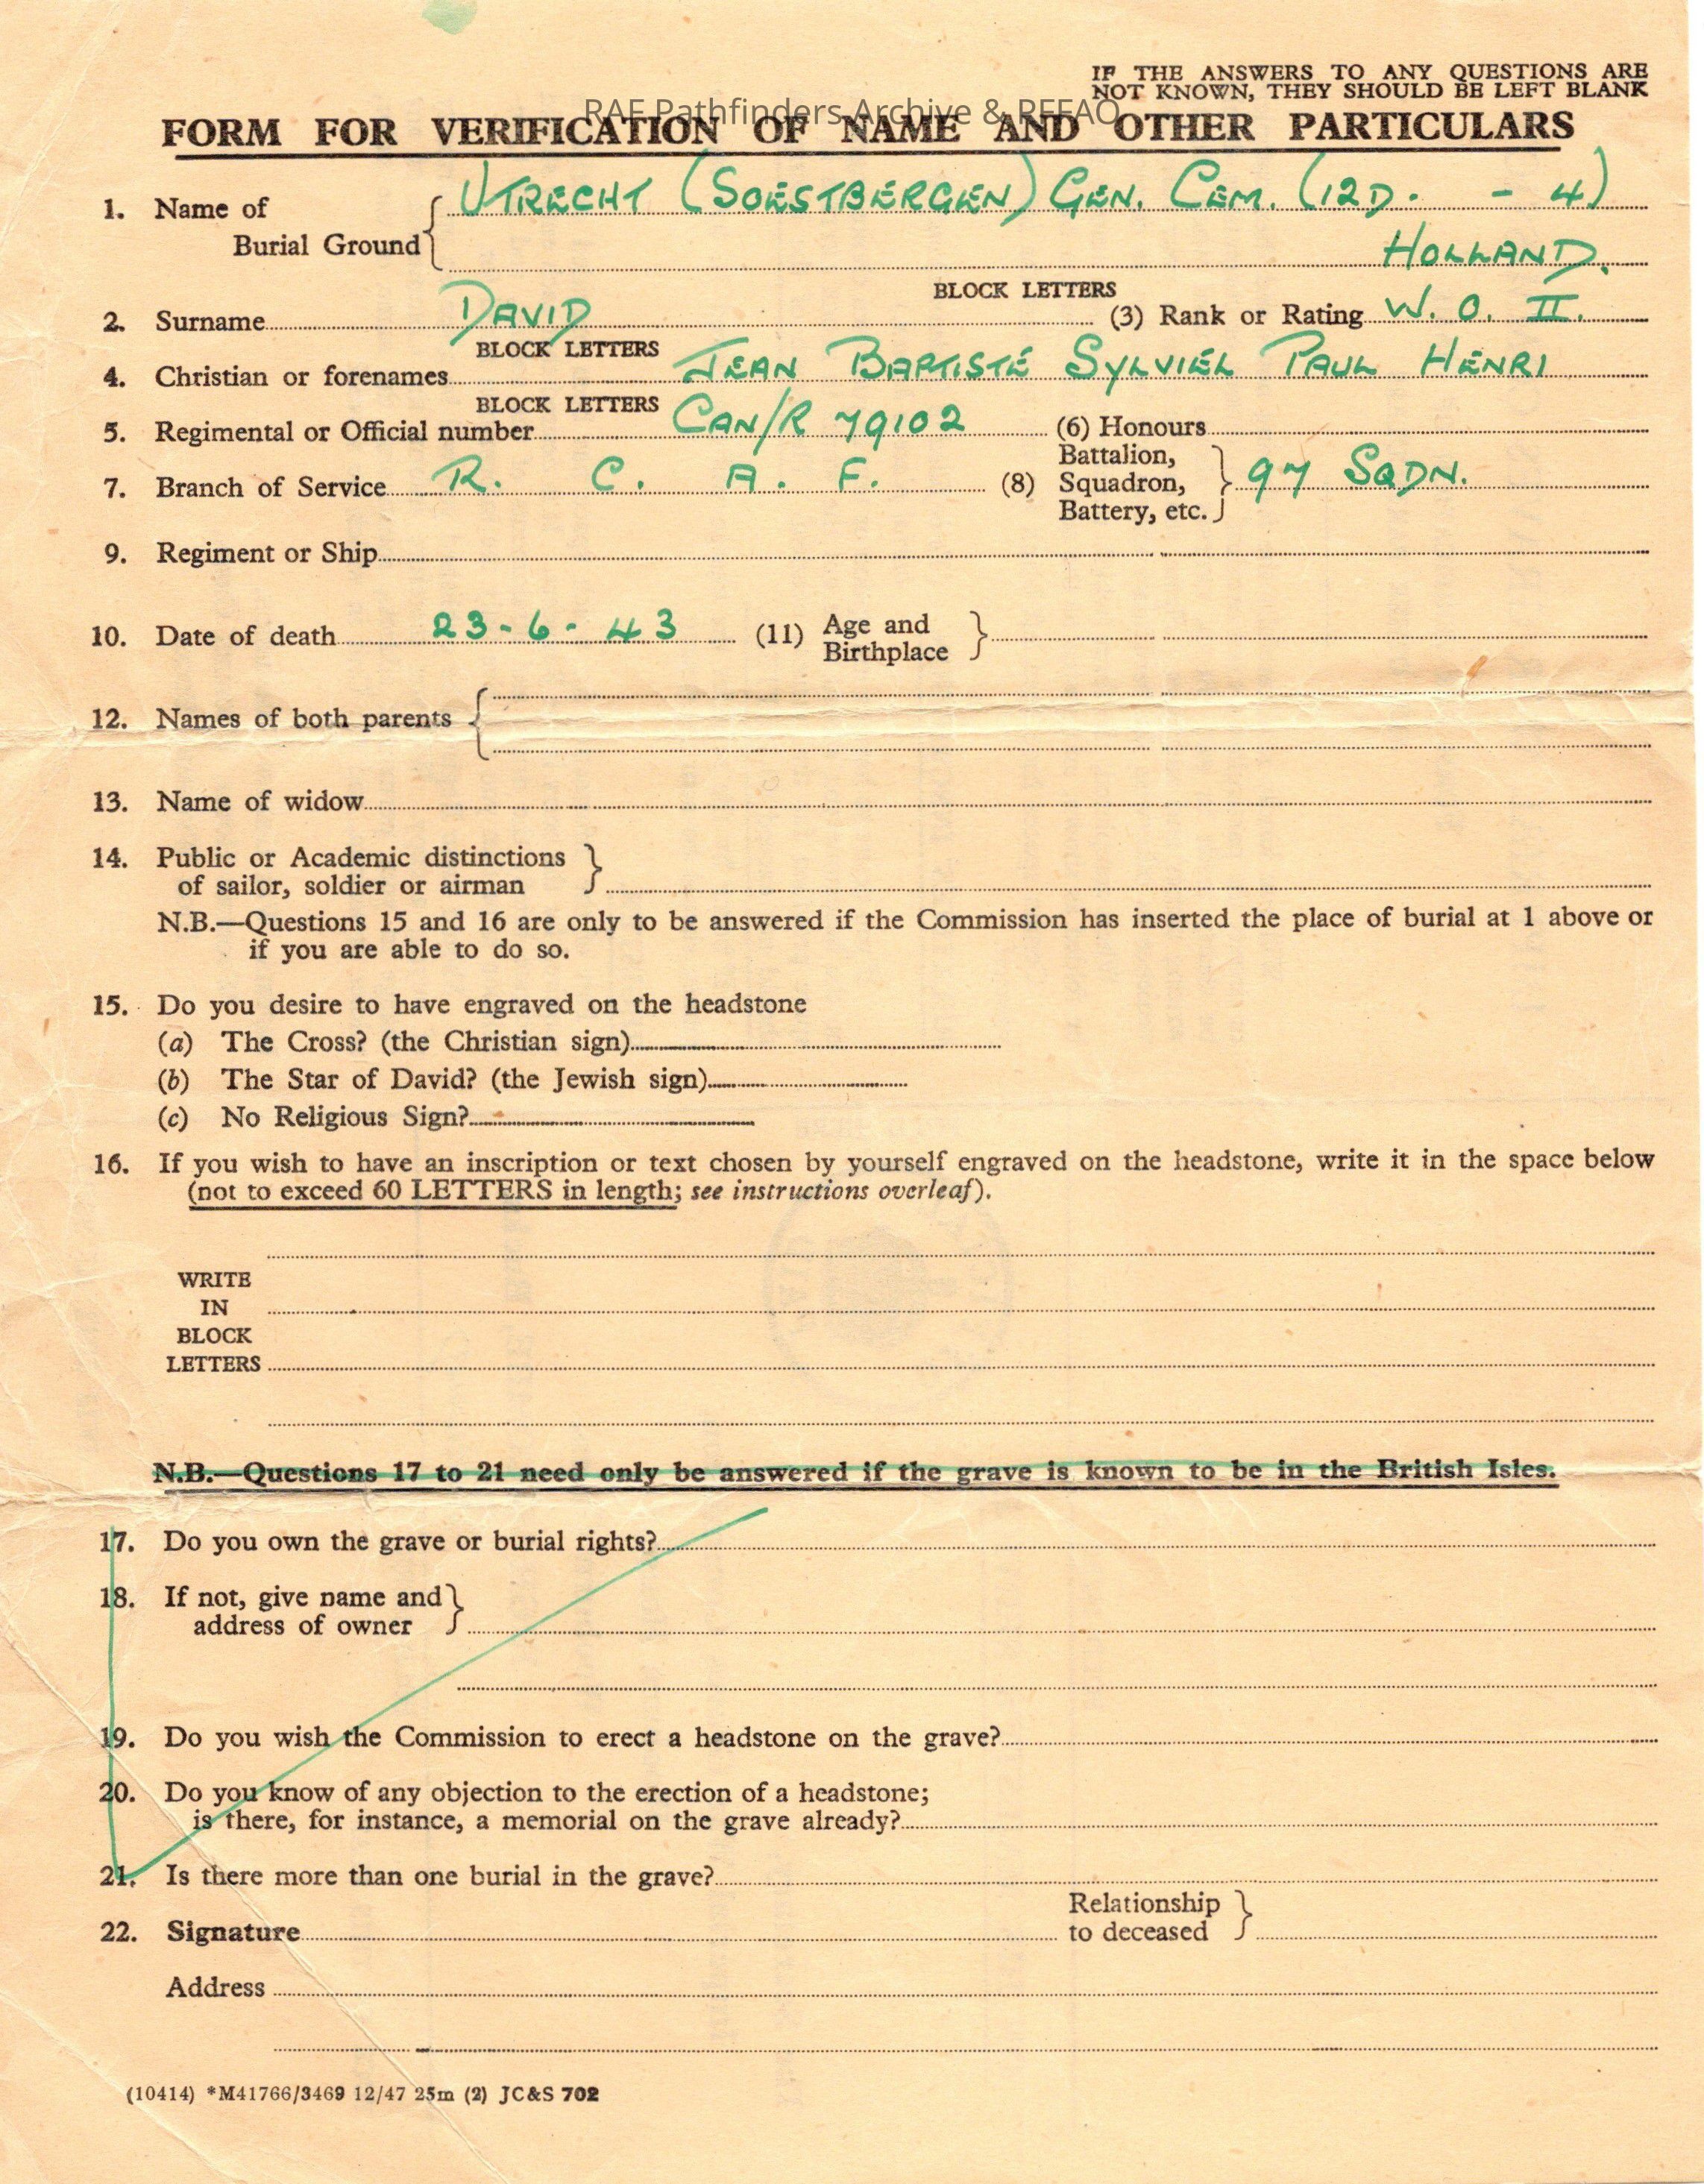 IF THE ANSWERS TO ANY QUESTIONS ARE
NOT KNOWN, THEY SHOULD BE LEFT BLANK
RAF Pathfinders Archive & RFFAO
FORM FOR VERIFICATION OF NAME AND OTHER PARTICULARS
1. Name of Burial Ground { UTRECHT (SOESTBERGEN) GEN. CEM. (12D. - 4)
HOLLAND.
BLOCK LETTERS
2. Surname DAVID (3) Rank or Rating W. O. II.
BLOCK LETTERS
4. Christian or forenames JEAN BAPTISTÉ SYLVIÉL PAUL HENRI
BLOCK LETTERS
5. Regimental or Official number CAN/R 79102 (6) Honours
7. Branch of Service R. C. A. F. (8) Battalion, Squadron, Battery, etc. } 97 SQDN.
9. Regiment or Ship
10. Date of death 23-6-43 (11) Age and Birthplace }
12. Names of both parents {
13. Name of widow
14. Public or Academic distinctions }
of sailor, soldier or airman
N.B.—Questions 15 and 16 are only to be answered if the Commission has inserted the place of burial at 1 above or
if you are able to do so.
15. Do you desire to have engraved on the headstone
(a) The Cross? (the Christian sign)
(b) The Star of David? (the Jewish sign)
(c) No Religious Sign?
16. If you wish to have an inscription or text chosen by yourself engraved on the headstone, write it in the space below
(not to exceed 60 LETTERS in length; see instructions overleaf).
WRITE
IN
BLOCK
LETTERS
N.B.—Questions 17 to 21 need only be answered if the grave is known to be in the British Isles.
17. Do you own the grave or burial rights?
18. If not, give name and }
address of owner
19. Do you wish the Commission to erect a headstone on the grave?
20. Do you know of any objection to the erection of a headstone;
is there, for instance, a memorial on the grave already?
21. Is there more than one burial in the grave?
22. Signature Relationship to deceased }
Address
(10414) *M41766/3469 12/47 25m (2) JC&S 702